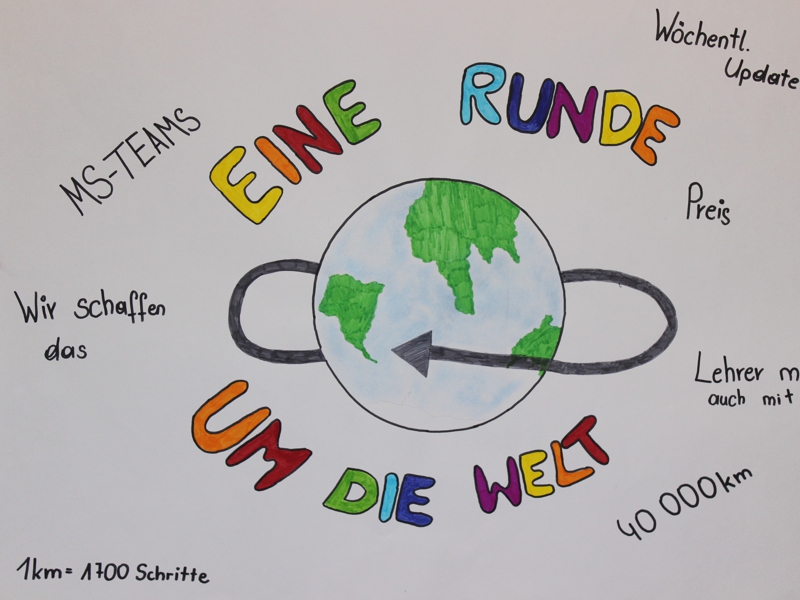 Wöchentl.
Update
MS-TEAMS
EINE RUNDE
Preis
Wir schaffen
das
Lehrer m
auch mit
UM DIE WELT
40 000km
1km = 1700 Schritte